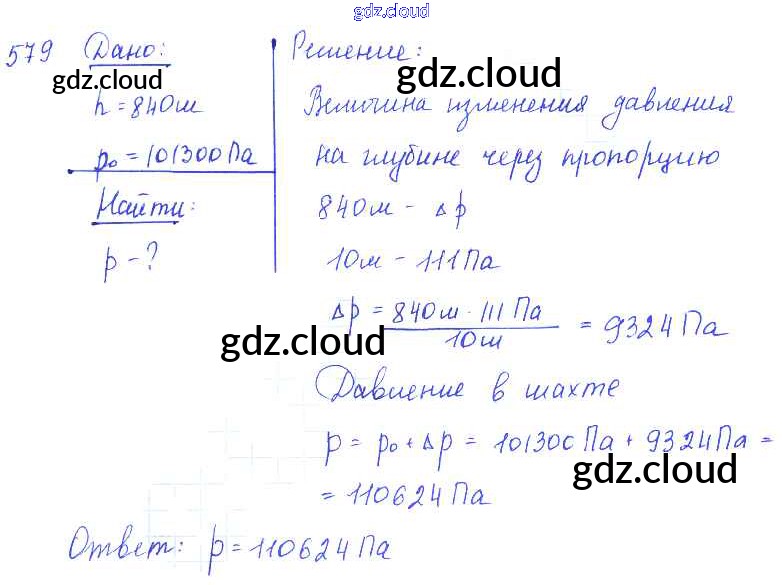 gdz.cloud
579 Дано:
gdz.cloud
h = 840м
p₀ = 101300 Па
Найти:
p - ?
Решение:
gdz.cloud
Величина изменения давления
на глубине через пропорцию
840м - Δp
10м - 111 Па
Δp = 840м · 111 Па / 10м = 9324 Па
gdz.cloud
Давление в шахте
p = p₀ + Δp = 101300 Па + 9324 Па =
gdz.cloud
= 110624 Па
Ответ: p = 110624 Па